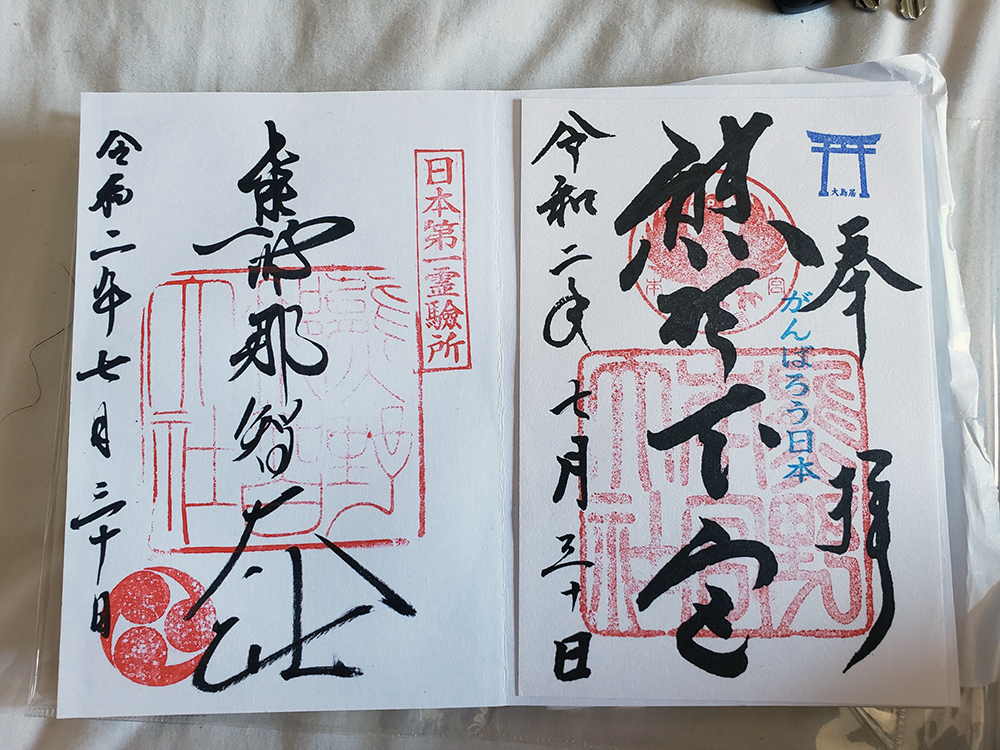 大鳥居
奉拝
がんばろう日本
熊野本宮
熊野本宮大社
本宮
令和二年七月三十日
日本第一霊驗所
熊野那智大社
令和二年七月三十日